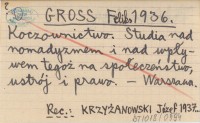 GROSS Feliks 1936.
Koczownictwo. Studia nad
nomadyzmem i nad wpły-
wem tegoż na społeczeństwo,
ustrój i prawo. – Warszawa.
Rec.: KRZYŻANOWSKI Józef 1937.